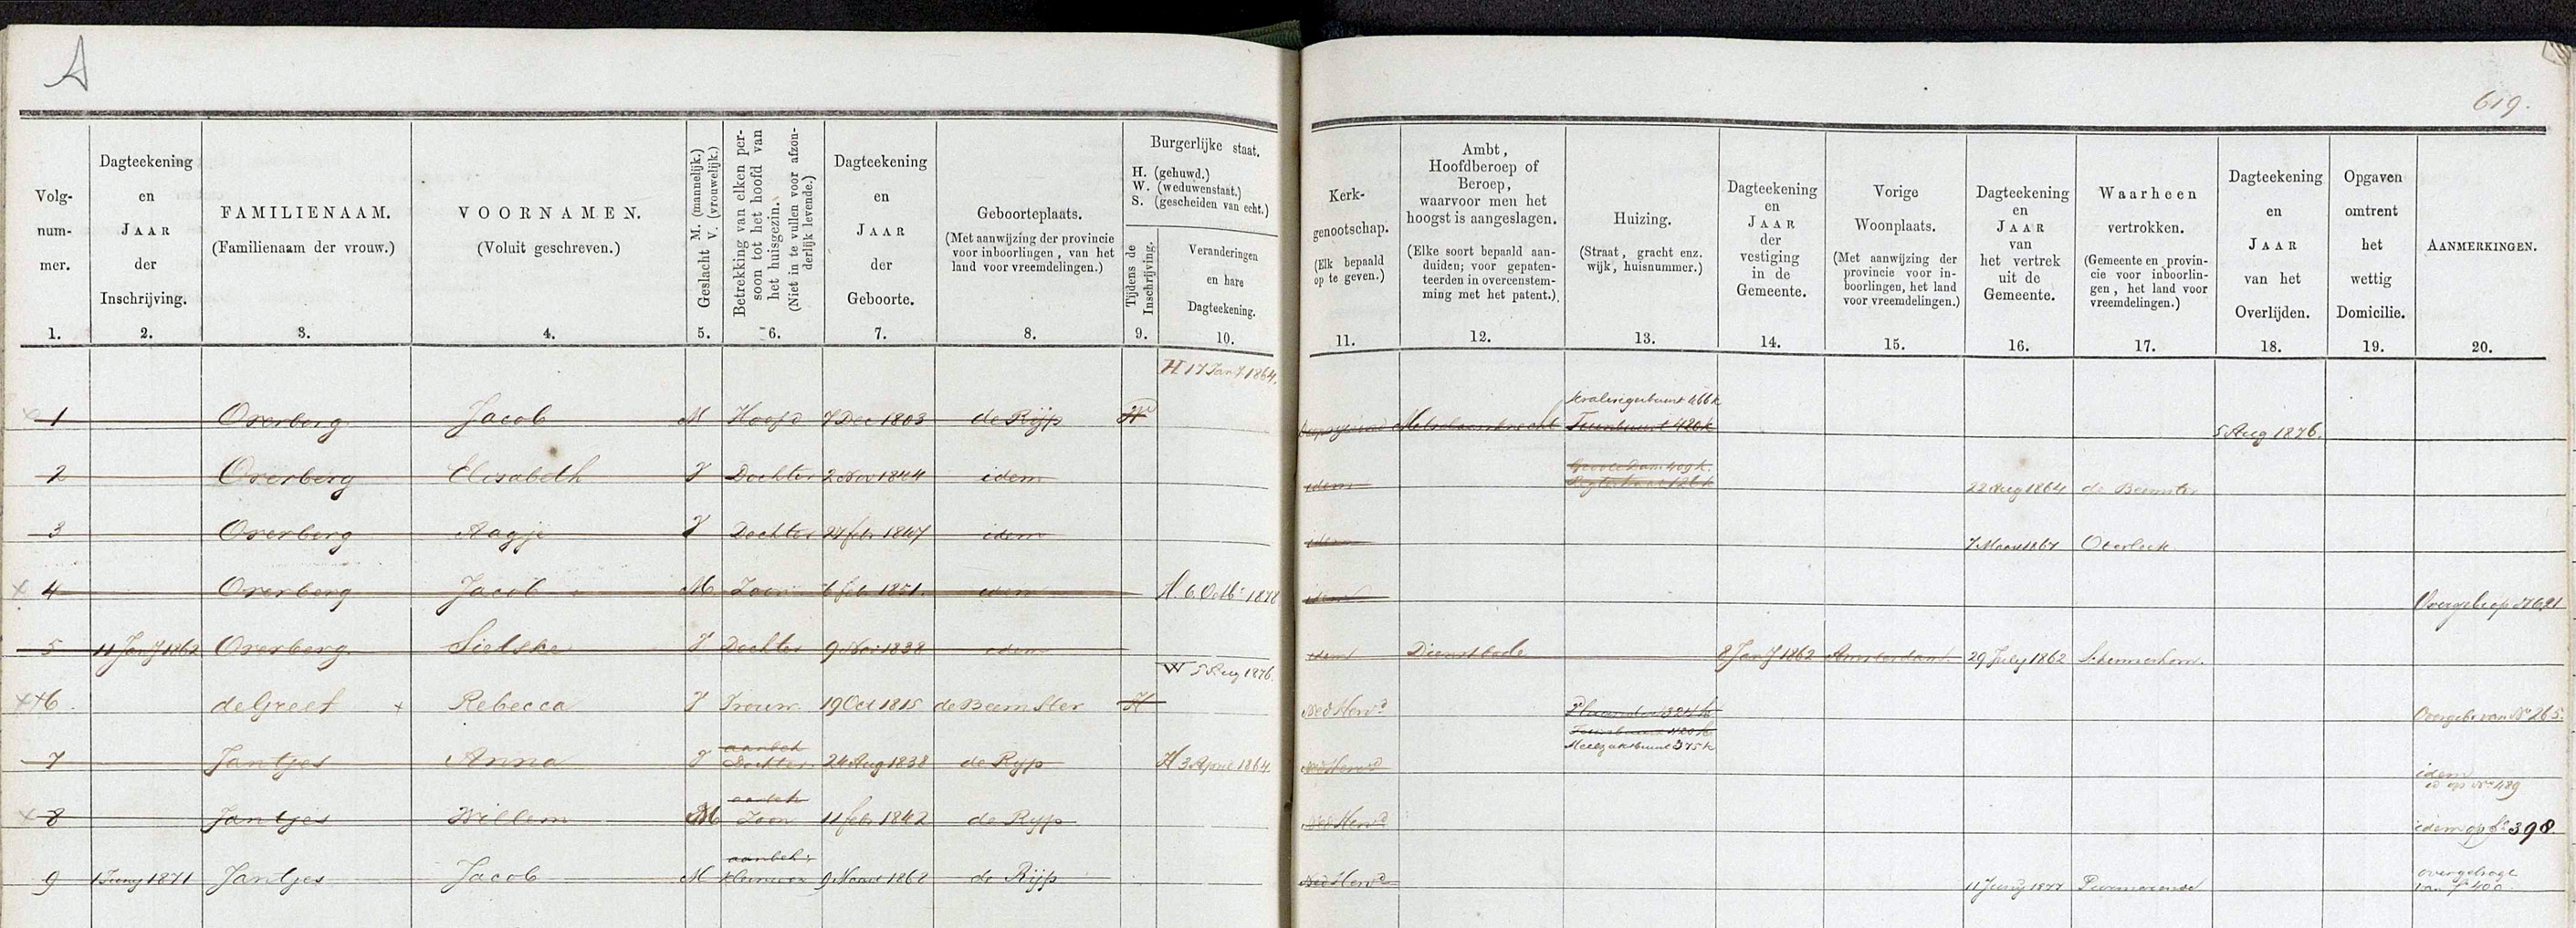 A
619.
Volg-
num-
mer.
1.
Dagteekening
en
JAAR
der
Inschrijving.
2.
FAMILIENAAM.
(Familienaam der vrouw.)
3.
VOORNAMEN.
(Voluit geschreven.)
4.
Geslacht M. (mannelijk.)
V. (vrouwelijk.)
5.
Betrekking van elken per-
soon tot het hoofd van
het huisgezin.
(Niet in te vullen voor afzon-
derlijk levende.)
6.
Dagteekening
en
JAAR
der
Geboorte.
7.
Geboorteplaats.
(Met aanwijzing der provincie
voor inboorlingen, van het
land voor vreemdelingen.)
8.
Burgerlijke staat.
H. (gehuwd.)
W. (weduwenstaat.)
S. (gescheiden van echt.)
Tijdens de
Inschrijving.
9.
Veranderingen
en hare
Dagteekening.
10.
Kerk-
genootschap.
(Elk bepaald
op te geven.)
11.
Ambt,
Hoofdberoep of
Beroep,
waarvoor men het
hoogst is aangeslagen.
(Elke soort bepaald aan-
duiden; voor gepaten-
teerden in overeenstem-
ming met het patent.)
12.
Huizing.
(Straat, gracht enz.
wijk, huisnummer.)
13.
Dagteekening
en
JAAR
der
vestiging
in de
Gemeente.
14.
Vorige
Woonplaats.
(Met aanwijzing der
provincie voor in-
boorlingen, het land
voor vreemdelingen.)
15.
Dagteekening
en
JAAR
van
het vertrek
uit de
Gemeente.
16.
Waarheen
vertrokken.
(Gemeente en provin-
cie voor inboorlin-
gen, het land voor
vreemdelingen.)
17.
Dagteekening
en
JAAR
van het
Overlijden.
18.
Opgaven
omtrent
het
wettig
Domicilie.
19.
AANMERKINGEN.
20.
H 17 Jany 1864.
1 Overberg Jacob M Hoofd 7 Dec 1803 de Rijp Metselaarsknecht Tuinbuurt 426k 5 Aug 1876.
2 Overberg Elisabeth V Dochter 2 Nov 1844 idem idem Groote Dam 409k. 22 Aug 1864 de Beemster
3 Overberg Aagje V Dochter 27 feb 1847 idem idem 7 Maart 1867 Oterleek
4 Overberg Jacob M. Zoon 6 feb 1851. idem H. 6 Octbr 1878 idem
5 11 Jany 1862 Overberg Sietske V Dochter 9 Nov 1838 idem idem Dienstbode 8 Jany 1862 Amsterdam 29 July 1862 Schermerhorn.
W 5 Aug 1876.
6. de Greef Rebecca V Vrouw 19 Oct 1815 de Beemster H Ned Hervd Overgebr van No 265.
Meelzakbuurt 375k
aanbeh
7 Jantjes Anna V Dochter 24 Aug 1838 de Ryp H 3 April 1864. Ned Hervd idem
id op No 489
8 Jantjes Willem M Zoon 11 feb 1842 de Ryp Ned Hervd idem op fo 398
aanbeh:
9 1 Juny 1871 Jantjes Jacob M 9 Maart 1862 de Rijp Ned Hervd 11 Juny 1877 Purmerende
van fo 400